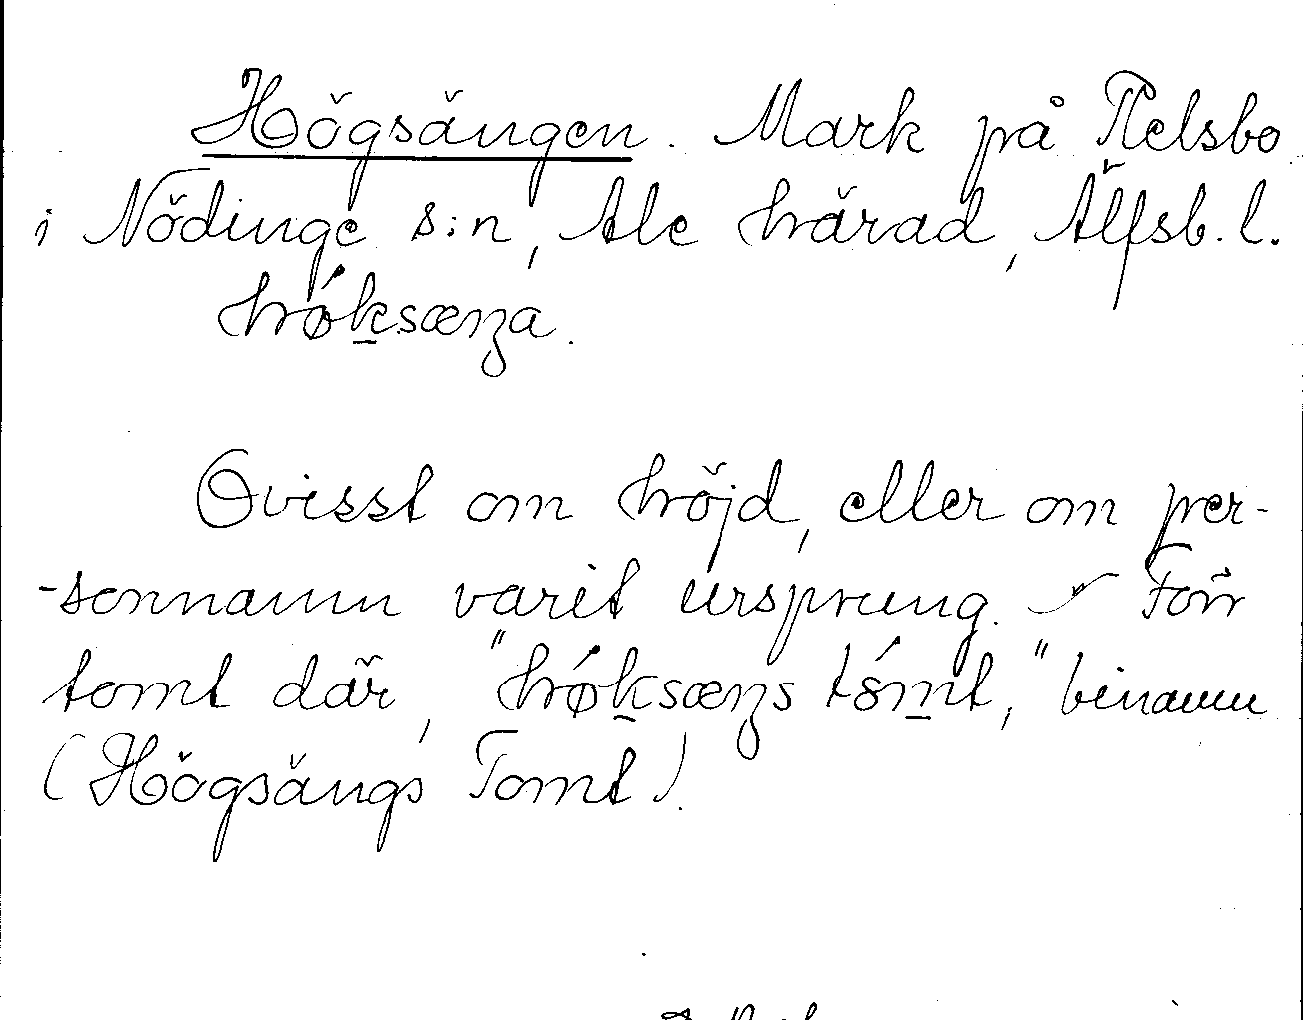 Högsängen. Mark på Relsbo
i Nödinge s:n, Ale härad, Älfsb. l.
hǿksæŋa.
Ovisst om höjd, eller om per-
-sonnamn varit ursprung. Förr
tomt där, "hǿksæŋs tómt," binamn
(Högsängs Tomt).